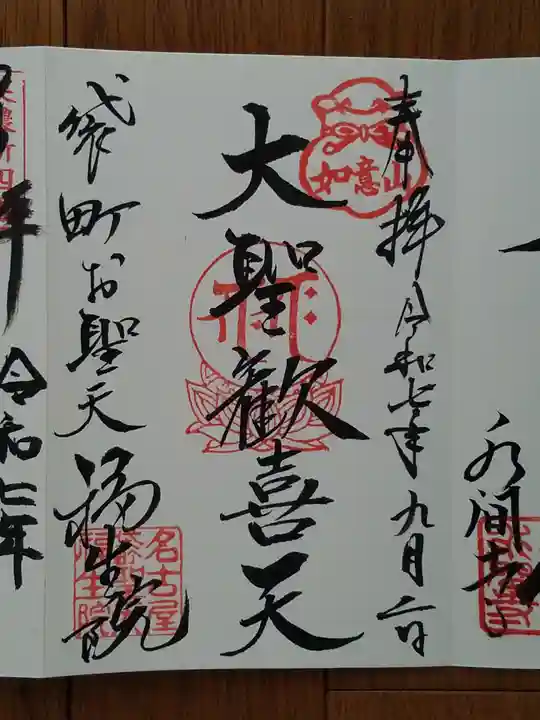 水間寺
奉拝 令和七年九月二日
如意山
大聖歓喜天
袋町お聖天 福生院
名古屋
福生院
令和七年